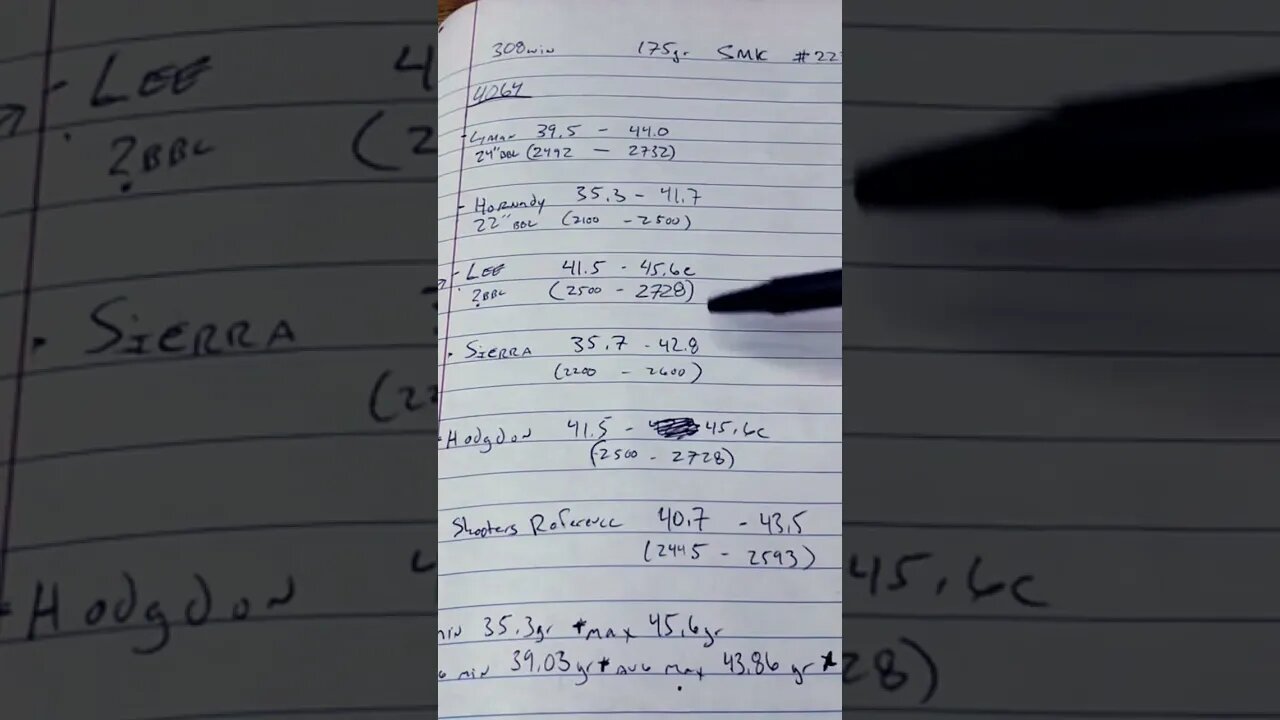 308 win 175gr SMK #22
4064
- Lyman 39.5 - 44.0
24" BBL (2492 - 2732)
- Hornady 35.3 - 41.7
22" BBL (2100 - 2500)
- LEE 41.5 - 45.6c
? BBL (2500 - 2728)
• SIERRA 35.7 - 42.8
(2200 - 2600)
Hodgdon 41.5 - 45.6c
(2500 - 2728)
Shooters Reference 40.7 - 43.5
(2445 - 2593)
min 35.3gr * max 45.6gr
min 39.03 gr * AVG max 43.86 gr *